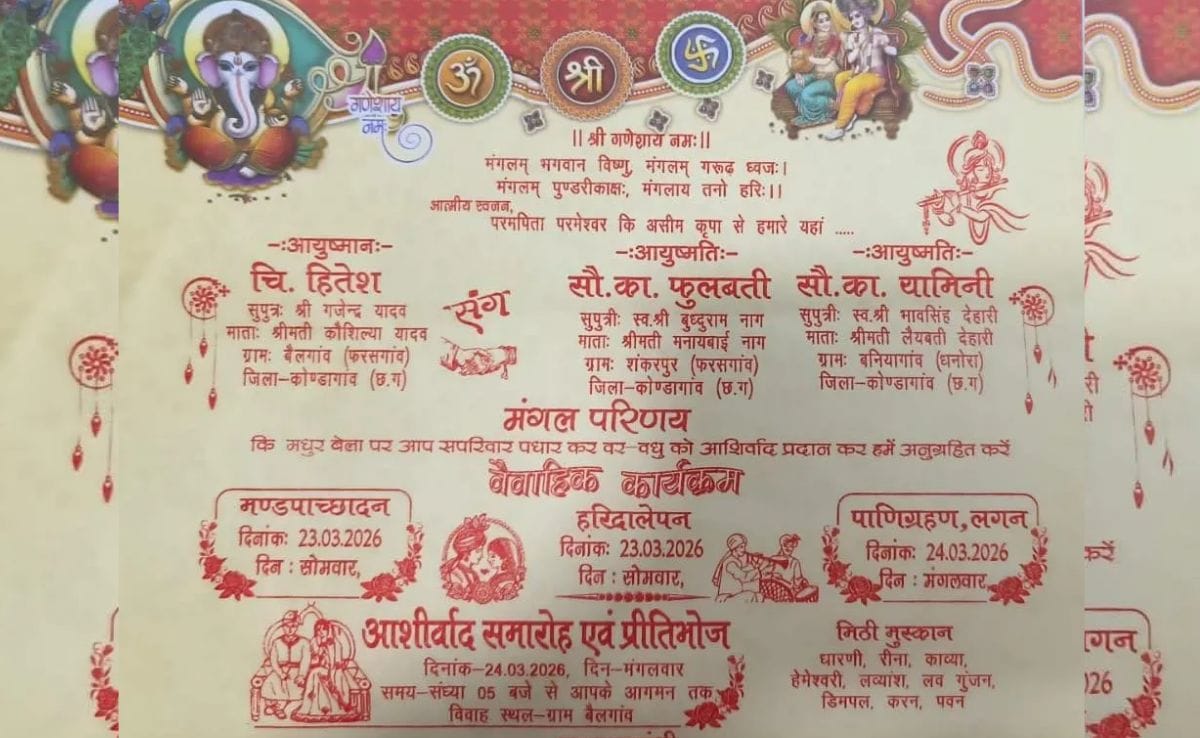 श्री
गणेशाय
नमः
ॐ
श्री
|| श्री गणेशाय नमः||
मंगलम् भगवान विष्णु, मंगलम् गरूढ़ ध्वजः।
मंगलम् पुण्डरीकाक्षः, मंगलाय तनो हरिः।।
आत्मीय स्वजन,
परमपिता परमेश्वर कि असीम कृपा से हमारे यहां .....
-:आयुष्मानः-
चि. हितेश
सुपुत्रः श्री गजेन्द्र यादव
माताः श्रीमती कौशिल्या यादव
ग्रामः बैलगांव (फरसगांव)
जिला-कोण्डागांव (छ.ग)
संग
-:आयुष्मतिः-
सौ.का. फुलबती
सुपुत्रीः स्व.श्री बुध्दुराम नाग
माताः श्रीमती मनायबाई नाग
ग्रामः शंकरपुर (फरसगांव)
जिला-कोण्डागांव (छ.ग)
-:आयुष्मतिः-
सौ.का. यामिनी
सुपुत्रीः स्व.श्री भावसिंह देहारी
माताः श्रीमती लैयबती देहारी
ग्रामः बनियागांव (धनोरा)
जिला-कोण्डागांव (छ.ग)
मंगल परिणय
कि मधुर बेला पर आप सपरिवार पधार कर वर-वधु को आशिर्वाद प्रदान कर हमें अनुग्रहित करें
वैवाहिक कार्यक्रम
मण्डपाच्छादन
दिनांकः 23.03.2026
दिन : सोमवार,
हरिदालेपन
दिनांकः 23.03.2026
दिन : सोमवार,
पाणिग्रहण, लगन
दिनांकः 24.03.2026
दिन : मंगलवार
आशीर्वाद समारोह एवं प्रीतिभोज
दिनांक-24.03.2026, दिन-मंगलवार
समय-संध्या 05 बजे से आपके आगमन तक,
विवाह स्थल-ग्राम बैलगांव
मिठी मुस्कान
धारणी, रीना, काव्या,
हेमेश्वरी, लव्यांश, लव गुंजन,
डिमपल, करन, पवन
करें
गन
26